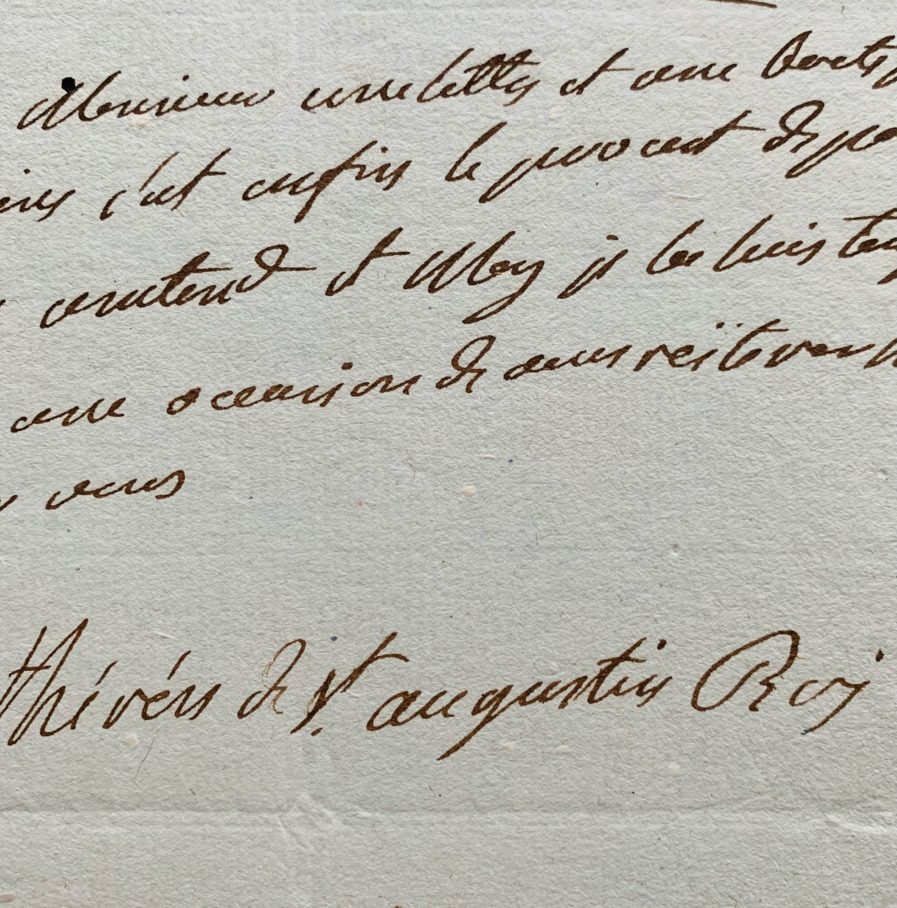 Monsieur une lettre et une boete
c'est enfin le procest de pa
contend et Moy je les suis
une occasion de vous reïterer
vous
thérése de St. augustin Roy